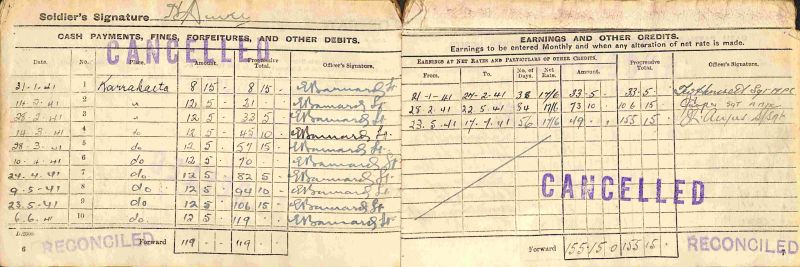 Soldier's Signature
CASH PAYMENTS, FINES, FORFEITURES, AND OTHER DEBITS.
CANCELLED
Date. Place. Amount. Progressive Total. Officer's Signature.
21-1-41 1 Karrakatta 8 15 - 8 15 - EBarnard Lt
14-2-41 2 " 12 5 - 21 - - EBarnard Lt
28-2-41 3 " 12 5 - EBarnard Lt
14-3-41 4 do 12 5 - 45 10 EBarnard Lt
28-3-41 5 do 12 5 - 57 15 EBarnard Lt
10-4-41 6 do 12 5 - 70 EBarnard Lt
24-4-41 7 do 12 5 - 82 5 EBarnard Lt
9-5-41 8 do 12 5 - 94 10 EBarnard Lt
23-5-41 9 do 12 5 - 106 15 EBarnard Lt
6-6-41 10 do 12 5 - 119 EBarnard Lt
Forward 119 - - 119 - -
6 RECONCILED
EARNINGS AND OTHER CREDITS.
Earnings to be entered Monthly and when any alteration of net rate is made.
EARNINGS AT NET RATES AND PARTICULARS OF OTHER CREDITS.
From. To. No. of Days. Net Rate. Amount. Progressive Total. Officer's Signature.
21-1-41 27-2-41 38 17/6 33-5- 33-5-
28.2.41 22.5.41 84 17/6 73 10 - 106 15
23.5.41 17-7-41 56 17/6 49 - - 155 15
CANCELLED
Forward 155-15-0 155 15 -
RECONCILED